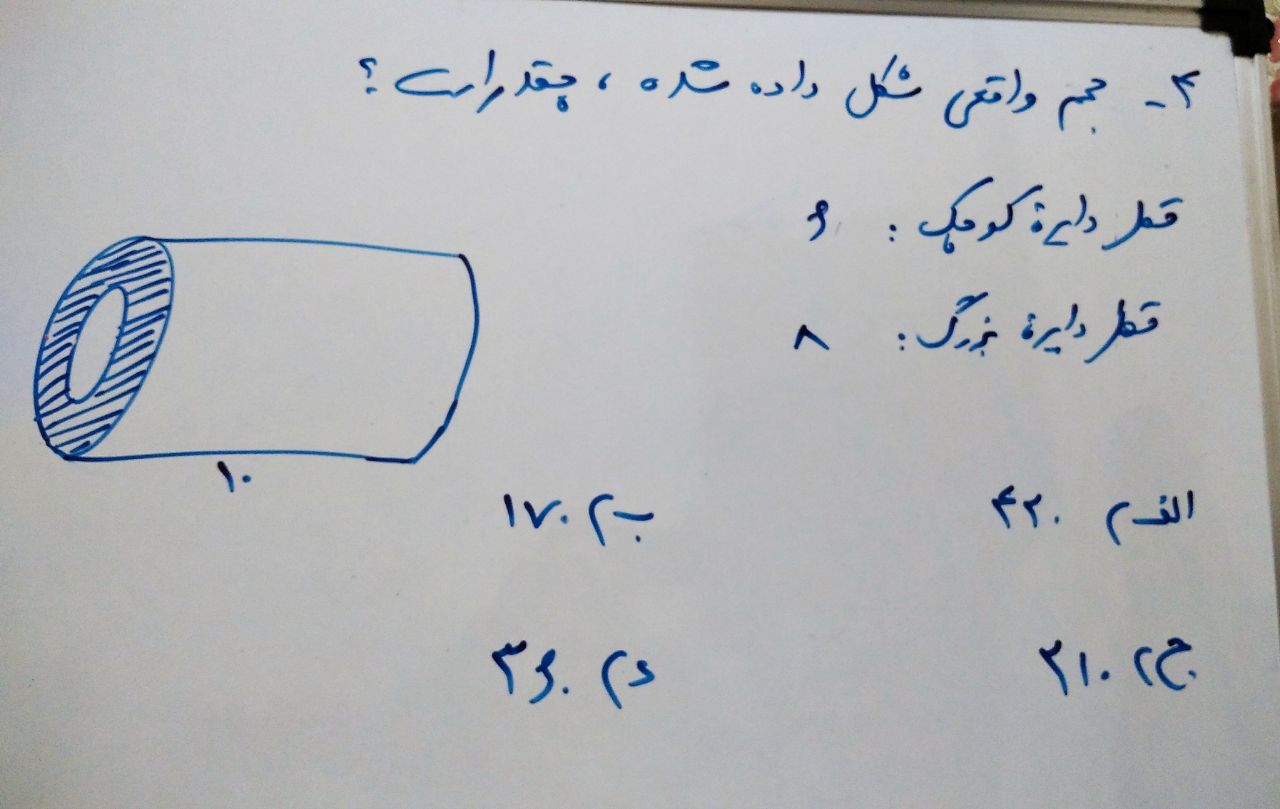 ۴- حجم واقعی شکل داده شده، چقدر است؟
قطر دایرۀ کوچک: ۶
قطر دایرۀ بزرگ: ۸
۱۰
الف) ۴۲۰ ب) ۱۷۰
ج) ۲۱۰ د) ۳۶۰